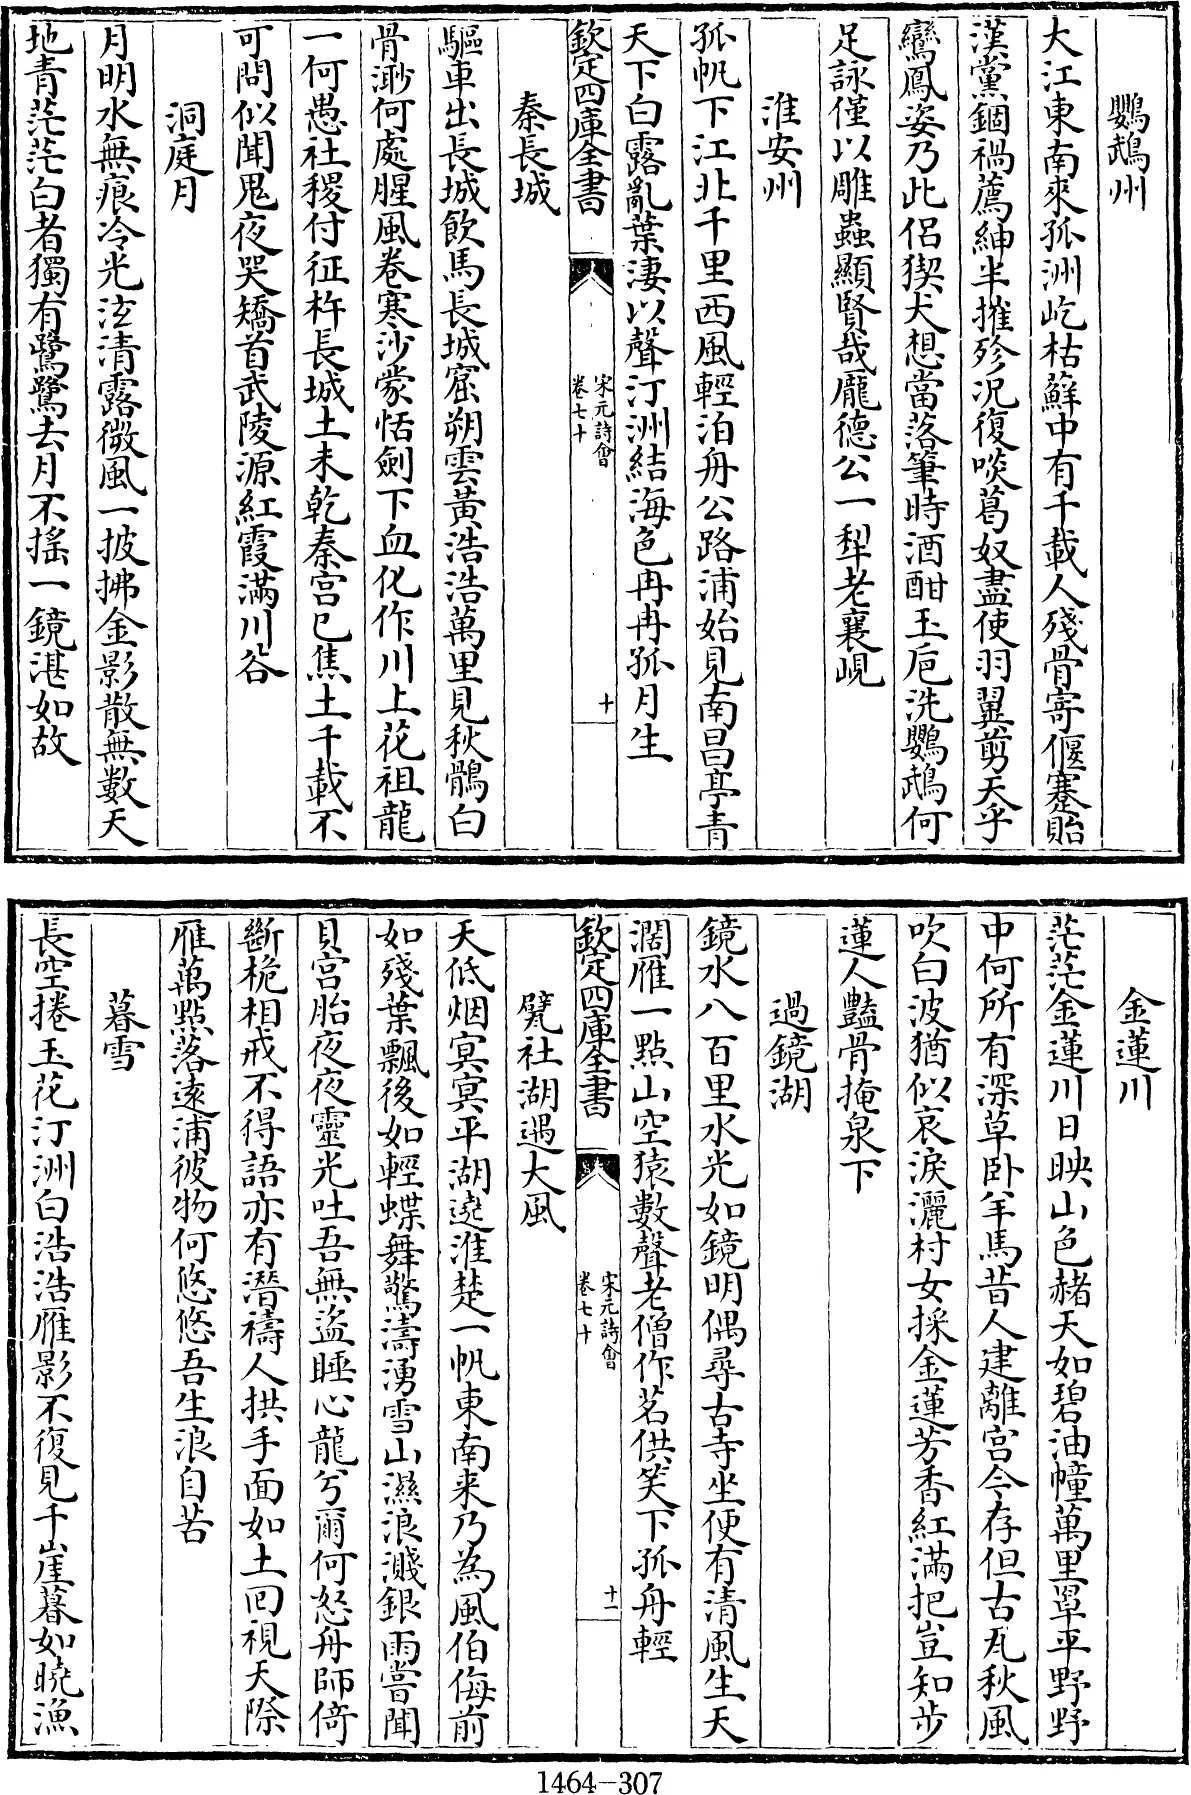 鸚鵡州
大江東南來孤洲屹枯蘚中有千載人殘骨寄偃蹇貽
漢黨錮禍薦紳半摧殄况復啖葛奴盡使羽翼剪天乎
鸞鳳姿乃此侣猰犬想當落筆時酒酣玉巵洗鸚鵡何
足詠僅以雕蟲顯賢哉龐德公一犁老襄峴
淮安州
孤帆下江北千里西風輕泊舟公路浦始見南昌亭青
天下白露亂葉淒以聲汀洲結海色冉冉孤月生
欽定四庫全書
宋元詩會
卷七十
十
秦長城
驅車出長城飲馬長城窟朔雲黄浩浩萬里見秋鶻白
骨渺何處腥風卷寒沙蒙恬劍下血化作川上花祖龍
一何愚社稷付征杵長城土未乾秦宫已焦土千載不
可問似聞鬼夜哭矯首武陵源紅霞滿川谷
洞庭月
月明水無痕冷光泫清露微風一披拂金影散無數天
地青茫茫白者獨有鷺鷺去月不摇一鏡湛如故
金蓮川
茫茫金蓮川日映山色赭天如碧油幢萬里罩平野野
中何所有深草卧羊馬昔人建離宫今存但古瓦秋風
吹白波猶似哀淚灑村女採金蓮芳香紅滿把豈知步
蓮人豔骨掩泉下
過鏡湖
鏡水八百里水光如鏡明偶尋古寺坐便有清風生天
濶雁一點山空猿數聲老僧作茗供笑下孤舟輕
欽定四庫全書
宋元詩會
卷七十
十一
甓社湖遇大風
天低烟冥冥平湖遶淮楚一帆東南来乃為風伯侮前
如殘葉飄後如輕蝶舞驚濤湧雪山濕浪濺銀雨嘗聞
貝宫胎夜夜靈光吐吾無盜睡心龍兮爾何怒舟師倚
斷桅相戒不得語亦有潛禱人拱手面如土囘視天際
雁萬點落遠浦彼物何悠悠吾生浪自苦
暮雪
長空捲玉花汀洲白浩浩雁影不復見千崖暮如曉漁
1464-307